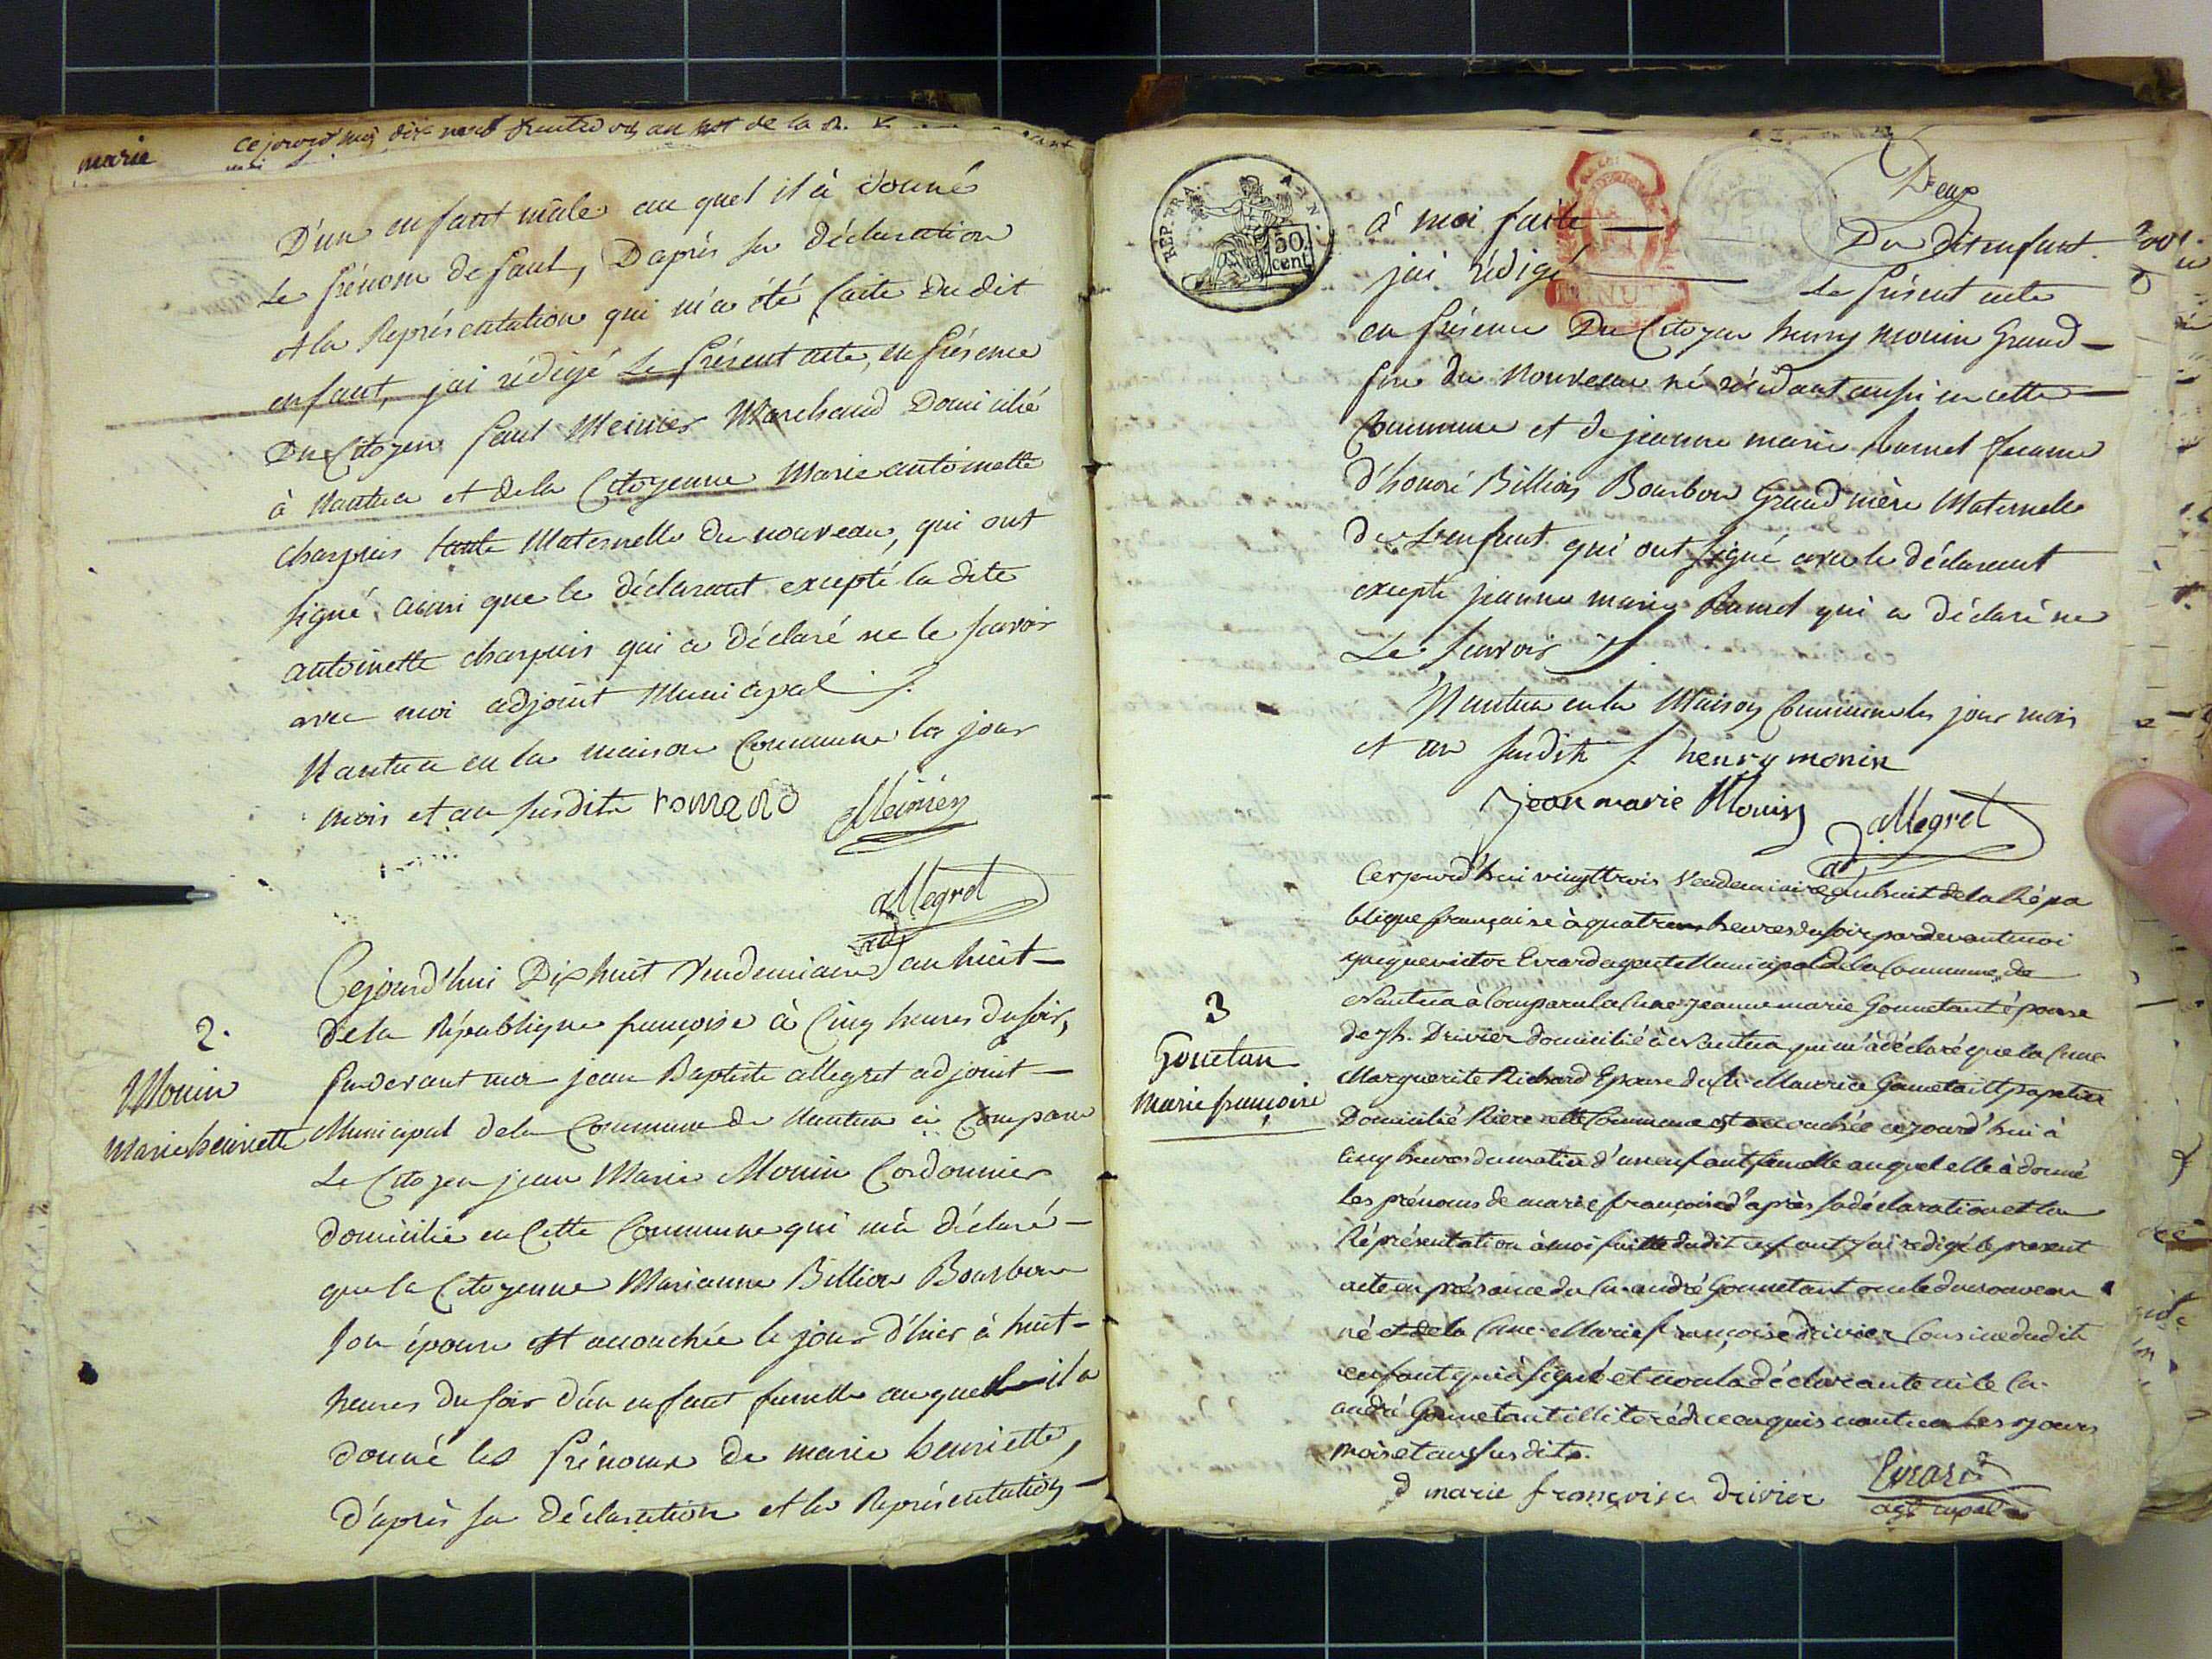 marie
cejourd'hui dix neuf de la
D'un enfant mâle au quel il à donné
Le prénom de paul, D'après sa déclaration
et la Représentation qui m'a été faite du dit
enfant, j'ai rédigé Le présent acte, en présence
Du Citoyen paul Meinier Marchand Domicilié
à Nantua et dela Citoyenne Marie antoinette
charpuis tante Maternelle du nouveau, qui ont
signé ainsi que le déclarant excepté la dite
antoinette charpuis qui a déclaré ne le savoir
avec moi adjoint Municipal
Nantua en la maison Commune les jour
mois et an susdits romand Meinier
allegret
adj
2.
Monin
Marie henriette
Cejourd'hui Dix huit Vendemiaire an huit
De la République françoise à Cinq heures du soir,
pardevant moi jean Baptiste allegret adjoint
Municipal dela Commune de Nantua à Comparu
Le Citoyen jean Marie Monin Cordonnier
domicilié en Cette Commune qui m'a déclaré
que la Citoyenne Marianne Billion Bourbon
son épouse est accouchée le jour d'hier à huit
heures du soir d'un enfant femelle auquel il a
donné les prénoms de marie henriette,
d'après sa déclaration et la Représentation
REP. FRA.
50
cent.
Deux
à moi faite Du dit enfant
j'ai rédigé Le présent acte
en présence Du Citoyen henry monin Grand
père du nouveau né résidant aussi en cette
Commune et de jeanne marie Ramel femme
d'honoré Billion Bourbon Grand mère Maternelle
de L'enfant qui ont signé avec le déclarant
excepté jeanne marie Ramel qui a déclaré ne
Le Savoir
Nantua en la Maison Commune les jour mois
et an susdits henry monin
jean marie Monin allegret
adj
3
Gonetan
Marie françoise
Cejourd'hui vingt trois Vendemiaire an huit de la Répu
blique française à quatre heures du soir par devant moi
jacque victor Evrard agent Municipal de la Commune de
Nantua à Comparu la Cne jeanne marie Gonnetant épouse
de jh. Drivier domicilié à Nantua qui m'à déclaré que la Cne
Marguerite Richard Epouse du Cn Maurice Gonnetant papetier
Domicilié Riere cette Commune est accouchée cejourd'hui à
Cinq heures du matin d'un enfant femelle auquel elle à donné
les prénoms de marie françoise d'après sa déclaration et la
Réprésentation à moi faitte dudit enfant j'ai redigé le present
acte en présance du Cn andré Gonnetant oncle du nouveau
né et de la Cne Marie françoise drivier Cousine dudit
enfant qui à signé et non la déclarante ni le Cn
andré Gonnetant illiteré de ce enquis nantua les jours
mois et an susdits.
marie françoise drivier Evrard
agt cipal